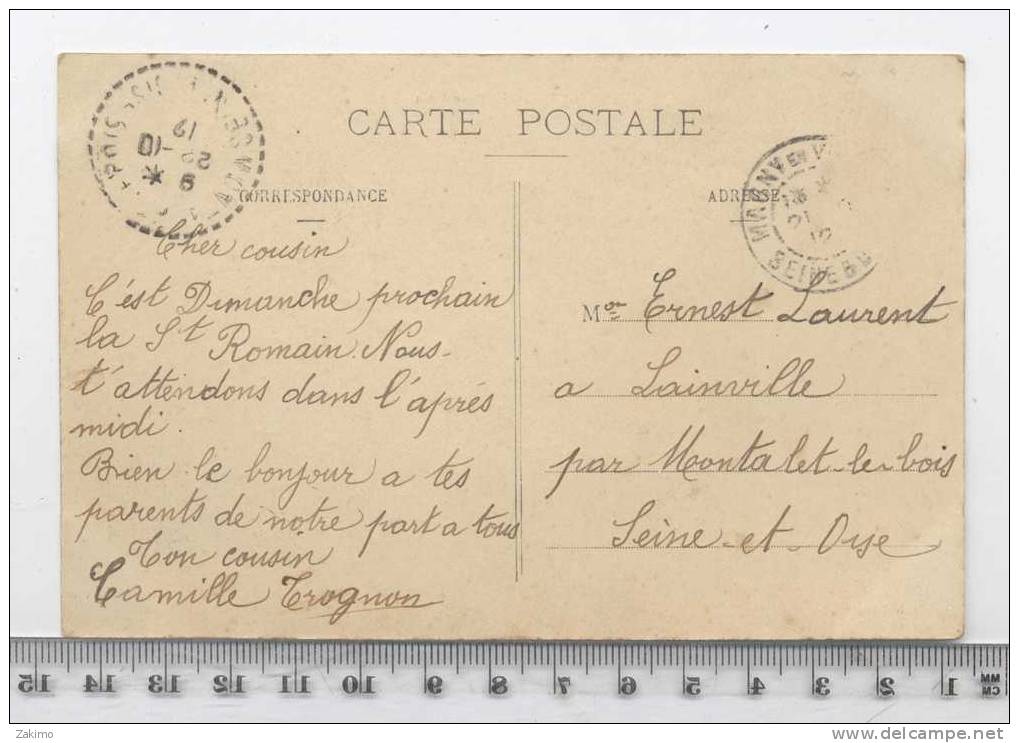 CARTE POSTALE
CORRESPONDANCE
Cher cousin
C'est Dimanche prochain
la St Romain. Nous
t'attendons dans l'après
midi.
Bien le bonjour a tes
parents de notre part a tous
Ton cousin
Camille Trognon
ADRESSE
MAGNY EN V
21
SEINE
Mr Ernest Laurent
a Lainville
par Montalet-le-bois
Seine-et-Oise
9
22 -10
12
15 14 13 12 11 10 9 8 7 6 5 4 3 2 1 MM
CM
Zakimo
www.delcampe.net